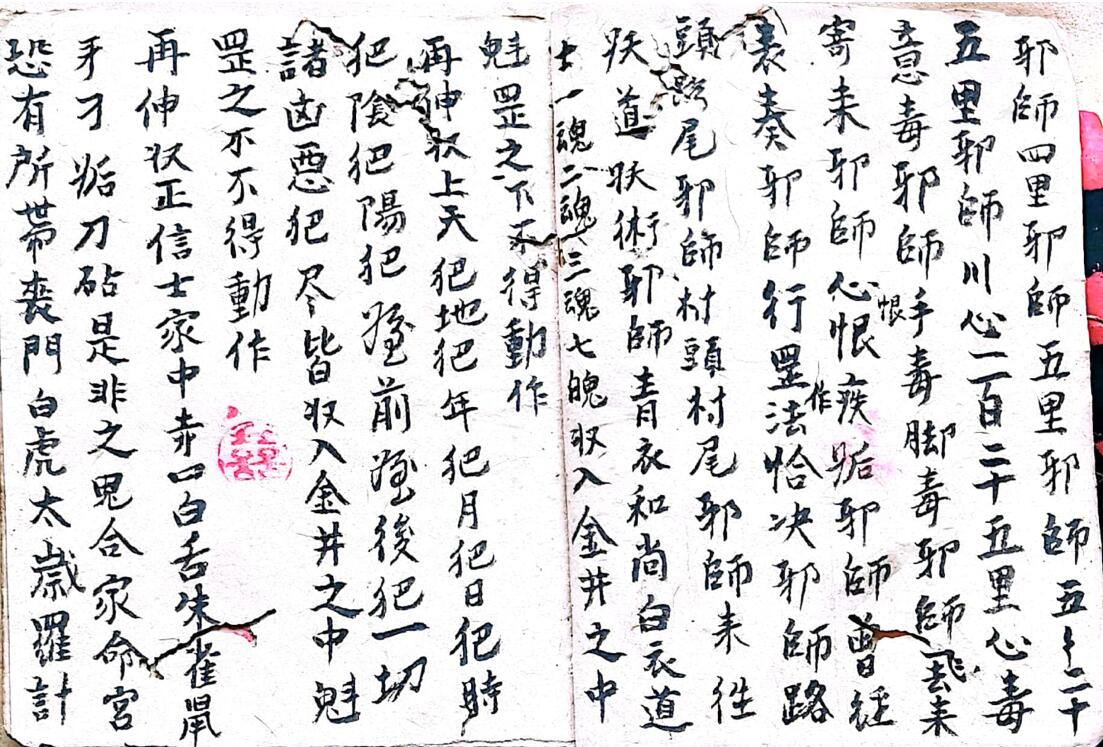 邪師四里邪師五里邪師五〻二十
五里邪師川心一百二十五里心毒
意毒邪師恨手毒脚毒邪師飛去来
寄来邪師心恨作疾妬邪師曾経
表奏邪師行罡法恰决邪師路
頭路尾邪師村頭村尾邪師来往
妖道妖術邪師青衣和尚白衣道
士一魂二魂三魂七魄収入金井之中
魁罡之下不得動作
再神状上天犯地犯年犯月犯日犯時
犯陰犯陽犯前後犯一切
諸凶惡犯尽皆収入金井之中魁
罡之不不得動作
再伸状正信士家中赤口白舌朱雀鬧
牙刁妬刀砧是非之鬼合家命宮
恐有所帶喪門白虎太歲羅計